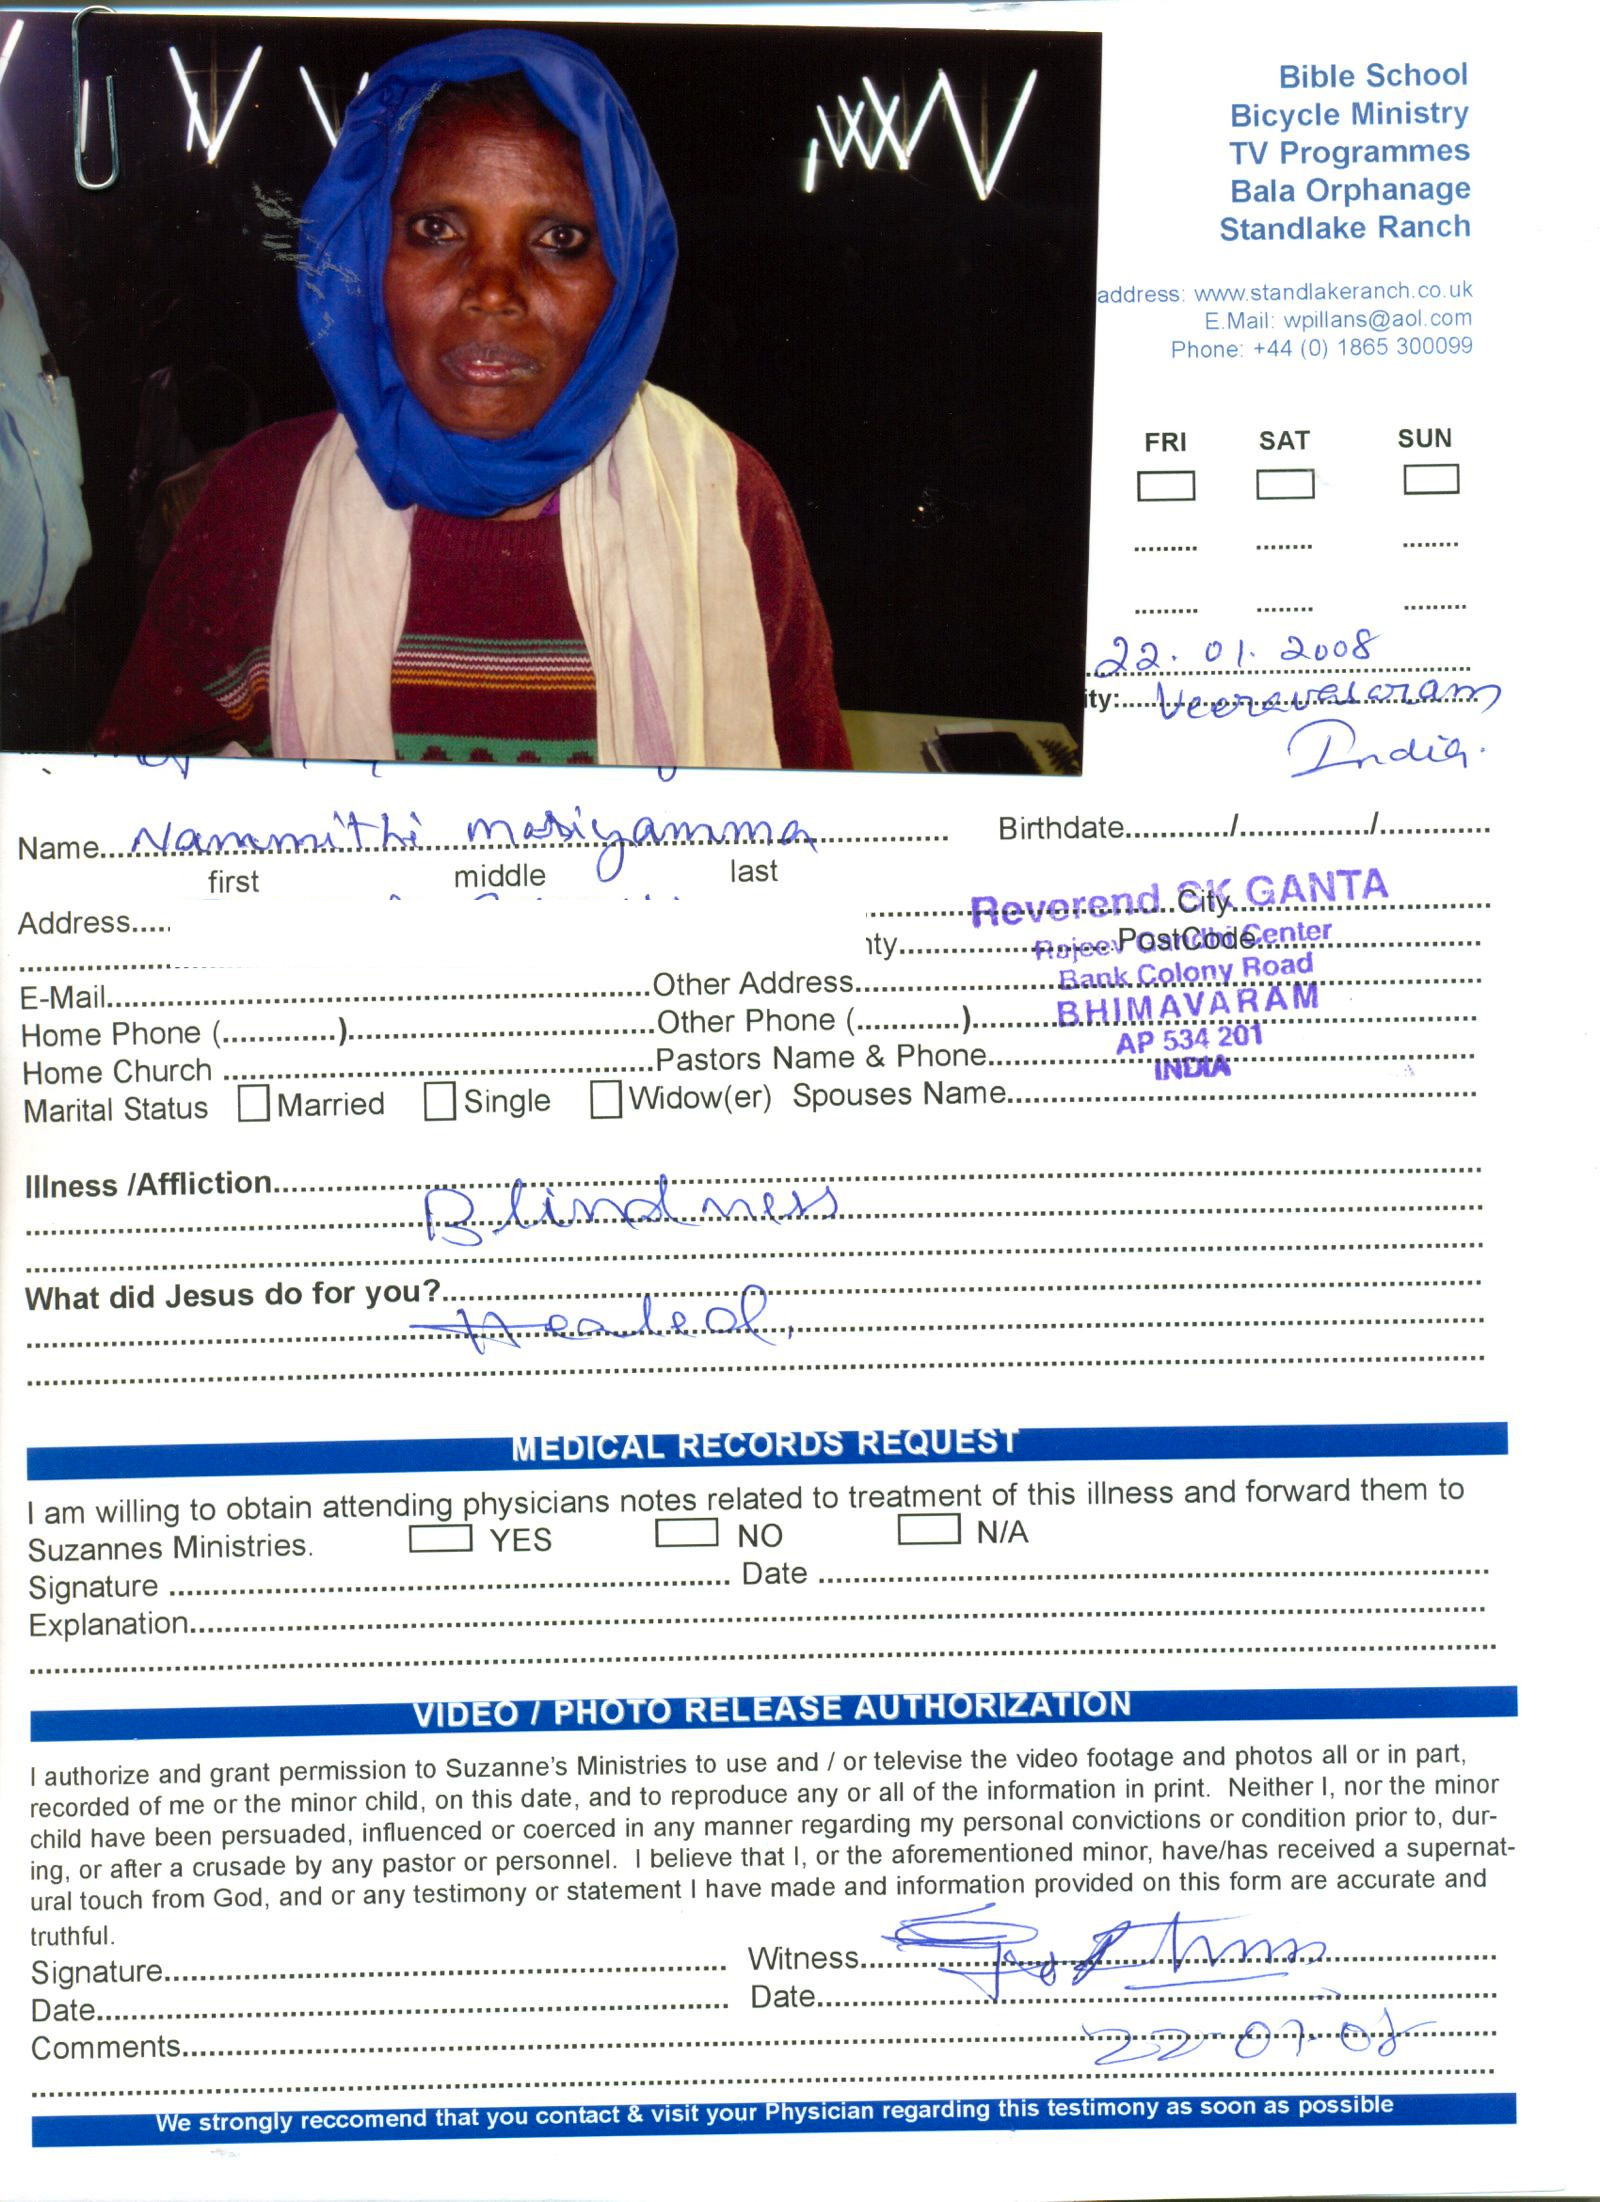 Bible School
Bicycle Ministry
TV Programmes
Bala Orphanage
Standlake Ranch
address: www.standlakeranch.co.uk
E.Mail: wpillans@aol.com
Phone: +44 (0) 1865 300099
FRI SAT SUN
22.01.2008
ity: Veeravasaram
India.
Name Nammithi mariyamma Birthdate / /
first middle last
Reverend SK GANTA
Address City
Rajeev Gandhi Center
nty PostCode
Bank Colony Road
E-Mail Other Address
BHIMAVARAM
Home Phone ( ) Other Phone ( )
AP 534 201
Home Church Pastors Name & Phone
INDIA
Marital Status Married Single Widow(er) Spouses Name
Illness /Affliction
Blindness
What did Jesus do for you?
Healed.
MEDICAL RECORDS REQUEST
I am willing to obtain attending physicians notes related to treatment of this illness and forward them to
Suzannes Ministries. YES NO N/A
Signature Date
Explanation
VIDEO / PHOTO RELEASE AUTHORIZATION
I authorize and grant permission to Suzanne's Ministries to use and / or televise the video footage and photos all or in part,
recorded of me or the minor child, on this date, and to reproduce any or all of the information in print. Neither I, nor the minor
child have been persuaded, influenced or coerced in any manner regarding my personal convictions or condition prior to, dur-
ing, or after a crusade by any pastor or personnel. I believe that I, or the aforementioned minor, have/has received a supernat-
ural touch from God, and or any testimony or statement I have made and information provided on this form are accurate and
truthful.
Signature Witness
Date Date
Comments 22-01-08
We strongly reccomend that you contact & visit your Physician regarding this testimony as soon as possible